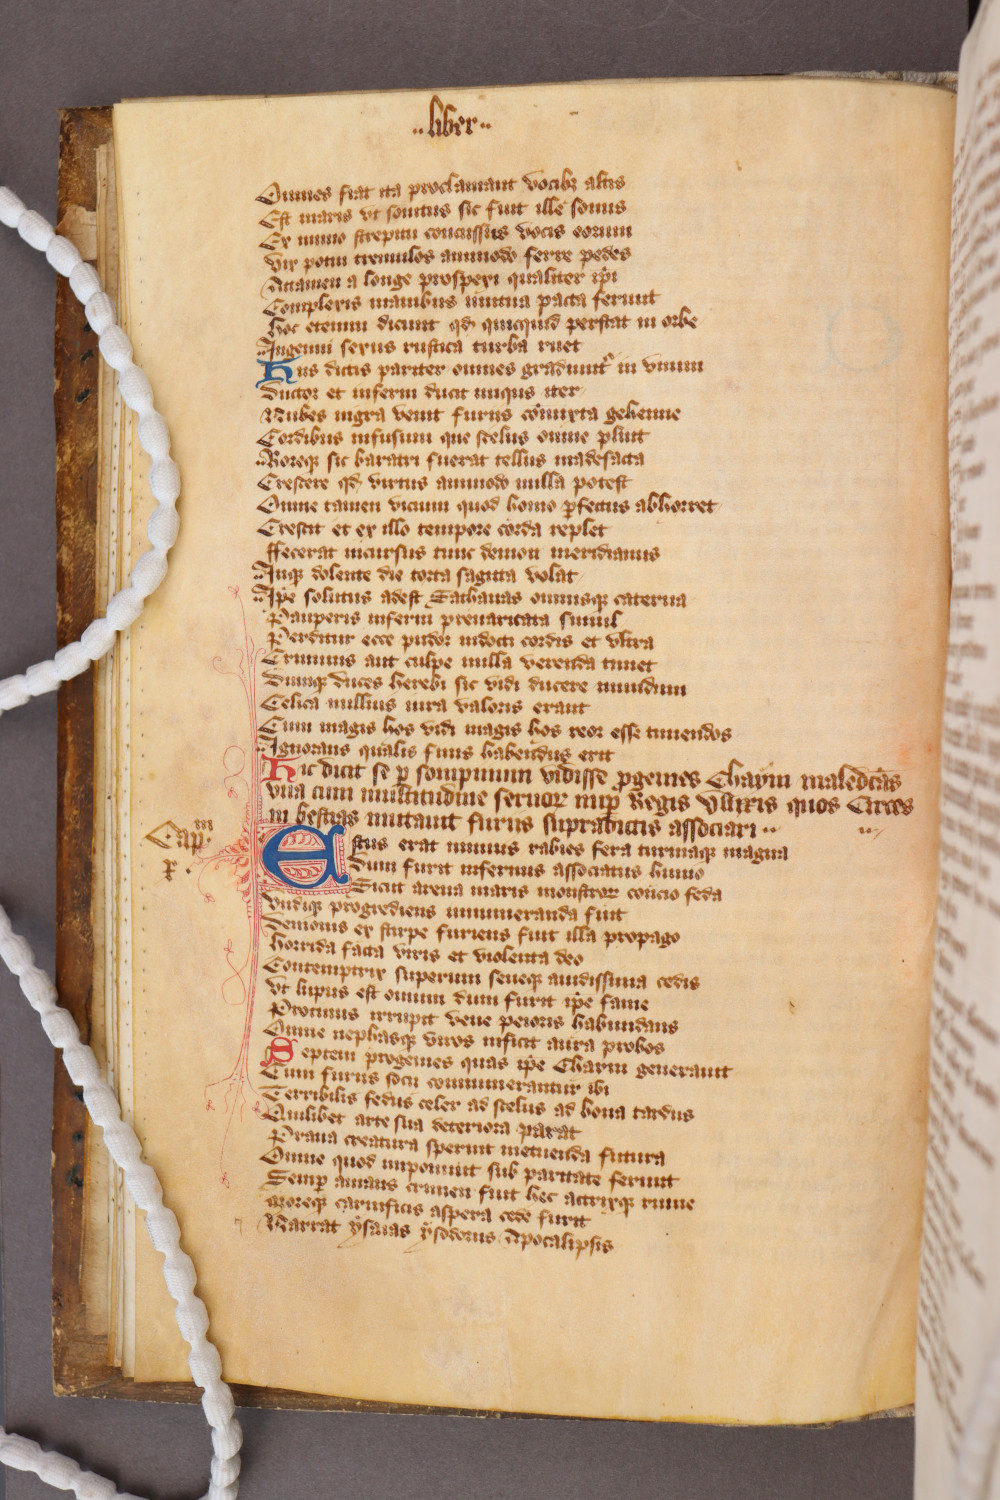 ..liber..
Omnes fiat ita proclamant vocibȝ altis
Est maris vt sonitus sic fuit ille sonus
Ex nimio strepitu concussus vocis eorum
Vix potui tremulos ammodo ferre pedes
Attamen a longe prospexi qualiter ip̄i
Complexis manibus mutua pacta ferunt
Hoc etenim dicunt qd̛ quicquid perstat in orbe
Ingenui sexus rustica turba ruet
Hiis dictis pariter omnes gradiunt᷑ in vnum
Ductor et inferni ducit iniqus iter
Nubes nigra venit furiis co᷑mixta gehenne
Cordibus infusum que scelus omne pluit
Roreqȝ sic baratri fuerat tellus madefacta
Crescere qd̛ virtus ammodo nulla potest
Omne tamen vicium quod homo ꝑfectus abhorret
Crescit et ex illo tempore corda replet
ffecerat incursus tunc demon meridianus
Inqȝ dolente die torta sagitta volat
Ip̄e solutus adest Sathanas omnisqȝ caterua
Pauperis inferni preuaricata simul
Perditur ecce pudor indocti cordis et vltra
Criminis aut culpe nulla verenda timet
Dumqȝ duces herebi sic vidi ducere mundum
Celica nullius iura valoris erant
Cum magis hos vidi magis hos reor esse timendos
Ignorans qualis finis habendus erit
Hic dicit se ꝑ sompnium vidisse ꝓgenies Chaym maledc̄as
vna cum multitudine seruoꝝ nuꝑ Regis Vlixis quos Circes
in bestias mutauit furiis supradictis associari ..
Capm
x̊.
Estus erat nimius rabies fera turmaqȝ magna
Dum furit infernus associatus humo
Sicut arena maris monstroꝝ concio feda
Vndiqȝ progrediens innumeranda fuit
Demonis ex stirpe furiens fuit illa propago
Horrida facta viris et violenta deo
Contemptrix superum seueqȝ auidissima cedis
Vt lupus est ouium dum furit ip̄e fame
Protinus irrupit vene peioris habundans
Omne nephasqȝ viros inficit aura probos
Septem progenies quas ip̄e Chaym generauit
Cum furiis socii connumerantur ibi
Terribilis fedus celer ad scelus ad bona tardus
Quilibet arte sua deteriora parat
Praua creatura spernit metuenda futura
Omne quod imponunt sub paritate ferunt
Semꝑ amans crimen fuit hec actrixqȝ ruine
Moreqȝ carnificis aspera cede furit
Narrat ẏsaias ẏsodorus Apocalipsis